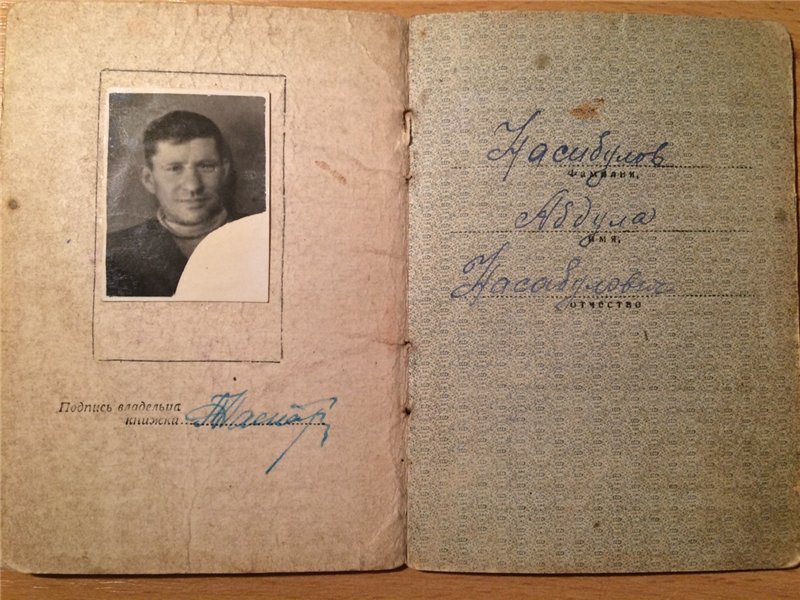 Подпись владельца
книжки
Насибулов
Фамилия,
Абдула
имя,
Насабулович
отчество